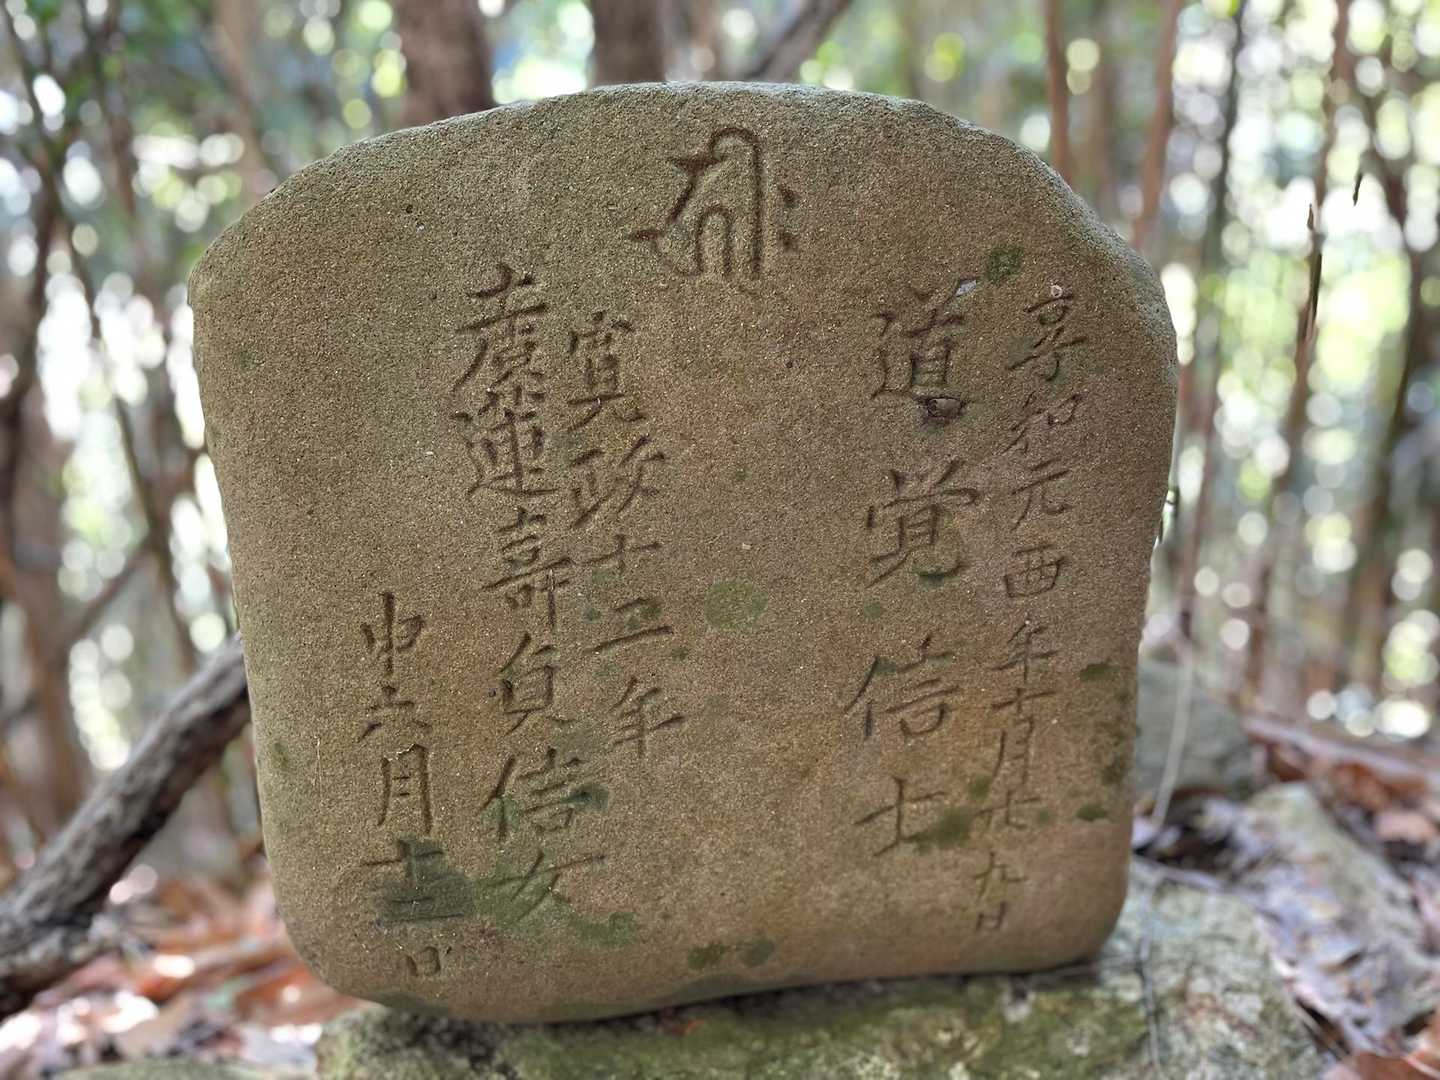 享和元酉年十月廿九日
道覚信士
寛政十二年
蓮貞信女
申六月十日